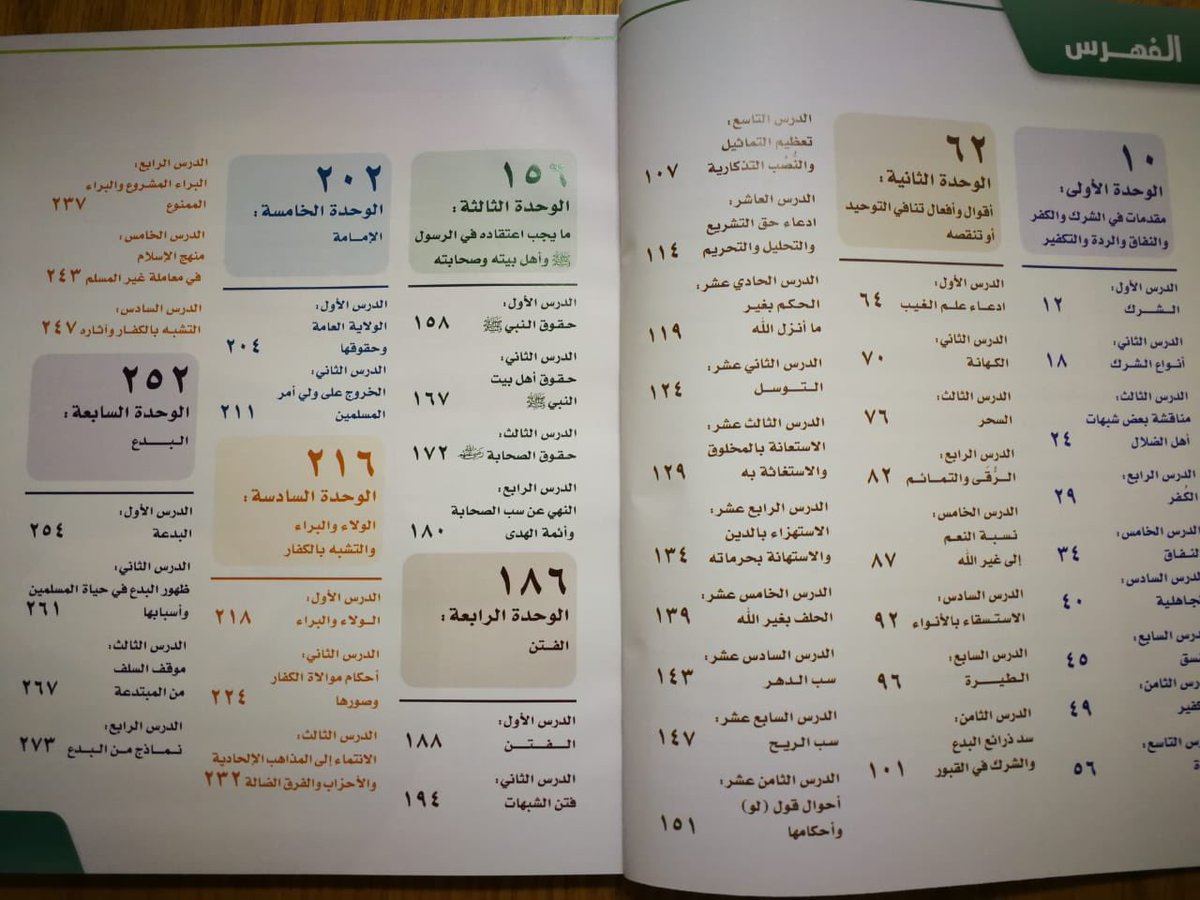 الفهرس
١٠
الوحدة الأولى:
مقدمات في الشرك والكفر
والنفاق والردة والتكفير
الدرس الأول:
الشرك ١٢
الدرس الثاني:
أنواع الشرك ١٨
الدرس الثالث:
مناقشة بعض شبهات
أهل الضلال ٢٤
الدرس الرابع:
الكُفر ٢٩
الدرس الخامس:
النفاق ٣٤
الدرس السادس:
٤٠
الدرس السابع:
٤٥
الدرس الثامن:
٤٩
الدرس التاسع:
٥٦
٦٢
الوحدة الثانية:
أقوال وأفعال تنافي التوحيد
أو تنقصه
الدرس الأول:
ادعاء علم الغيب ٦٤
الدرس الثاني:
الكهانة ٧٠
الدرس الثالث:
السحر ٧٦
الدرس الرابع:
الرُّقَى والتمائم ٨٢
الدرس الخامس:
نسبة النعم
إلى غير الله ٨٧
الدرس السادس:
الاستسقاء بالأنواء ٩٢
الدرس السابع:
الطيرة ٩٦
الدرس الثامن:
سد ذرائع البدع
والشرك في القبور ١٠١
الدرس التاسع:
تعظيم التماثيل
والنُّصُب التذكارية ١٠٧
الدرس العاشر:
ادعاء حق التشريع
والتحليل والتحريم ١١٤
الدرس الحادي عشر:
الحكم بغير
ما أنزل الله ١١٩
الدرس الثاني عشر:
التوسل ١٢٤
الدرس الثالث عشر:
الاستعانة بالمخلوق
والاستغاثة به ١٢٩
الدرس الرابع عشر:
الاستهزاء بالدين
والاستهانة بحرماته ١٣٤
الدرس الخامس عشر:
الحلف بغير الله ١٣٩
الدرس السادس عشر:
سب الدهر ١٤٣
الدرس السابع عشر:
سب الريح ١٤٧
الدرس الثامن عشر:
أحوال قول (لو)
وأحكامها ١٥١
١٥٦
الوحدة الثالثة:
ما يجب اعتقاده في الرسول
ﷺ وأهل بيته وصحابته
الدرس الأول:
حقوق النبي ﷺ ١٥٨
الدرس الثاني:
حقوق أهل بيت
النبي ﷺ ١٦٧
الدرس الثالث:
حقوق الصحابة ١٧٢
الدرس الرابع:
النهي عن سب الصحابة
وأئمة الهدى ١٨٠
١٨٦
الوحدة الرابعة:
الفتن
الدرس الأول:
الفتن ١٨٨
الدرس الثاني:
فتن الشبهات ١٩٤
٢٠٢
الوحدة الخامسة:
الإمامة
الدرس الأول:
الولاية العامة
وحقوقها ٢٠٤
الدرس الثاني:
الخروج على ولي أمر
المسلمين ٢١١
٢١٦
الوحدة السادسة:
الولاء والبراء
والتشبه بالكفار
الدرس الأول:
الولاء والبراء ٢١٨
الدرس الثاني:
أحكام موالاة الكفار
وصورها ٢٢٤
الدرس الثالث:
الانتماء إلى المذاهب الإلحادية
والأحزاب والفرق الضالة ٢٣٢
الدرس الرابع:
البراء المشروع والبراء
الممنوع ٢٣٧
الدرس الخامس:
منهج الإسلام
في معاملة غير المسلم ٢٤٣
الدرس السادس:
التشبه بالكفار وآثاره ٢٤٧
٢٥٢
الوحدة السابعة:
البدع
الدرس الأول:
البدعة ٢٥٤
الدرس الثاني:
ظهور البدع في حياة المسلمين
وأسبابها ٢٦١
الدرس الثالث:
موقف السلف
من المبتدعة ٢٦٧
الدرس الرابع:
نماذج من البدع ٢٧٣